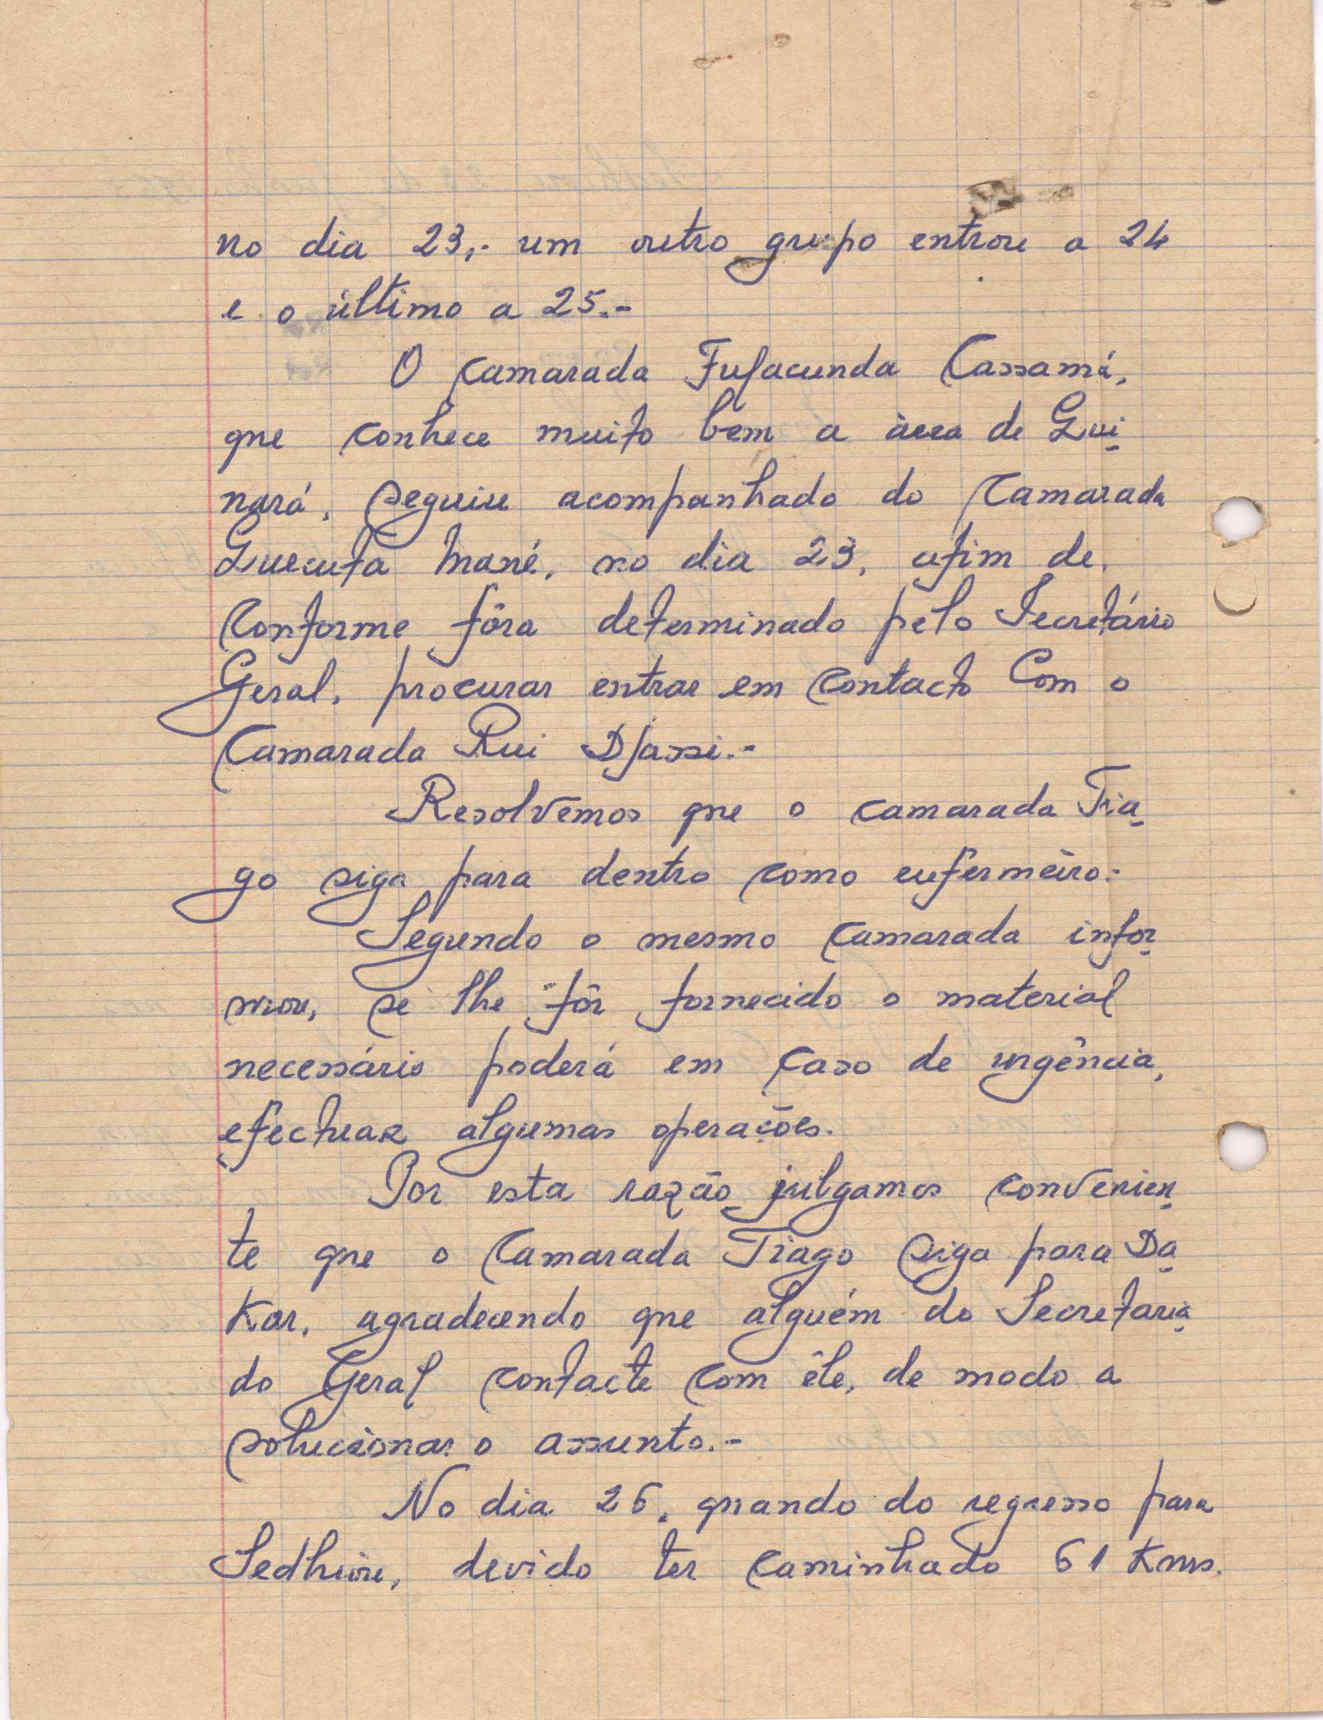 no dia 23,- um outro grupo entrou a 24
e o último a 25.-
O camarada Fulacunda Cassamá,
que conhece muito bem a área de Gui
nará, seguiu acompanhado do camarada
Quecuta Mané, no dia 23, afim de,
conforme fôra determinado pelo Secretário
Geral, procurar entrar em contacto com o
camarada Rui Djassi.-
Resolvemos que o camarada Tia
go siga para dentro como enfermeiro.-
Segundo o mesmo camarada infor
mou, se lhe fôr fornecido o material
necessário poderá em caso de urgência,
efectuar algumas operações.
Por esta razão julgamos convenien
te que o camarada Tiago siga para Da
kar, agradecendo que alguém do Secretaria
do Geral contacte com êle, de modo a
solucionar o assunto.-
No dia 26, quando do regresso para
Sedhiou, devido ter caminhado 61 Kms.